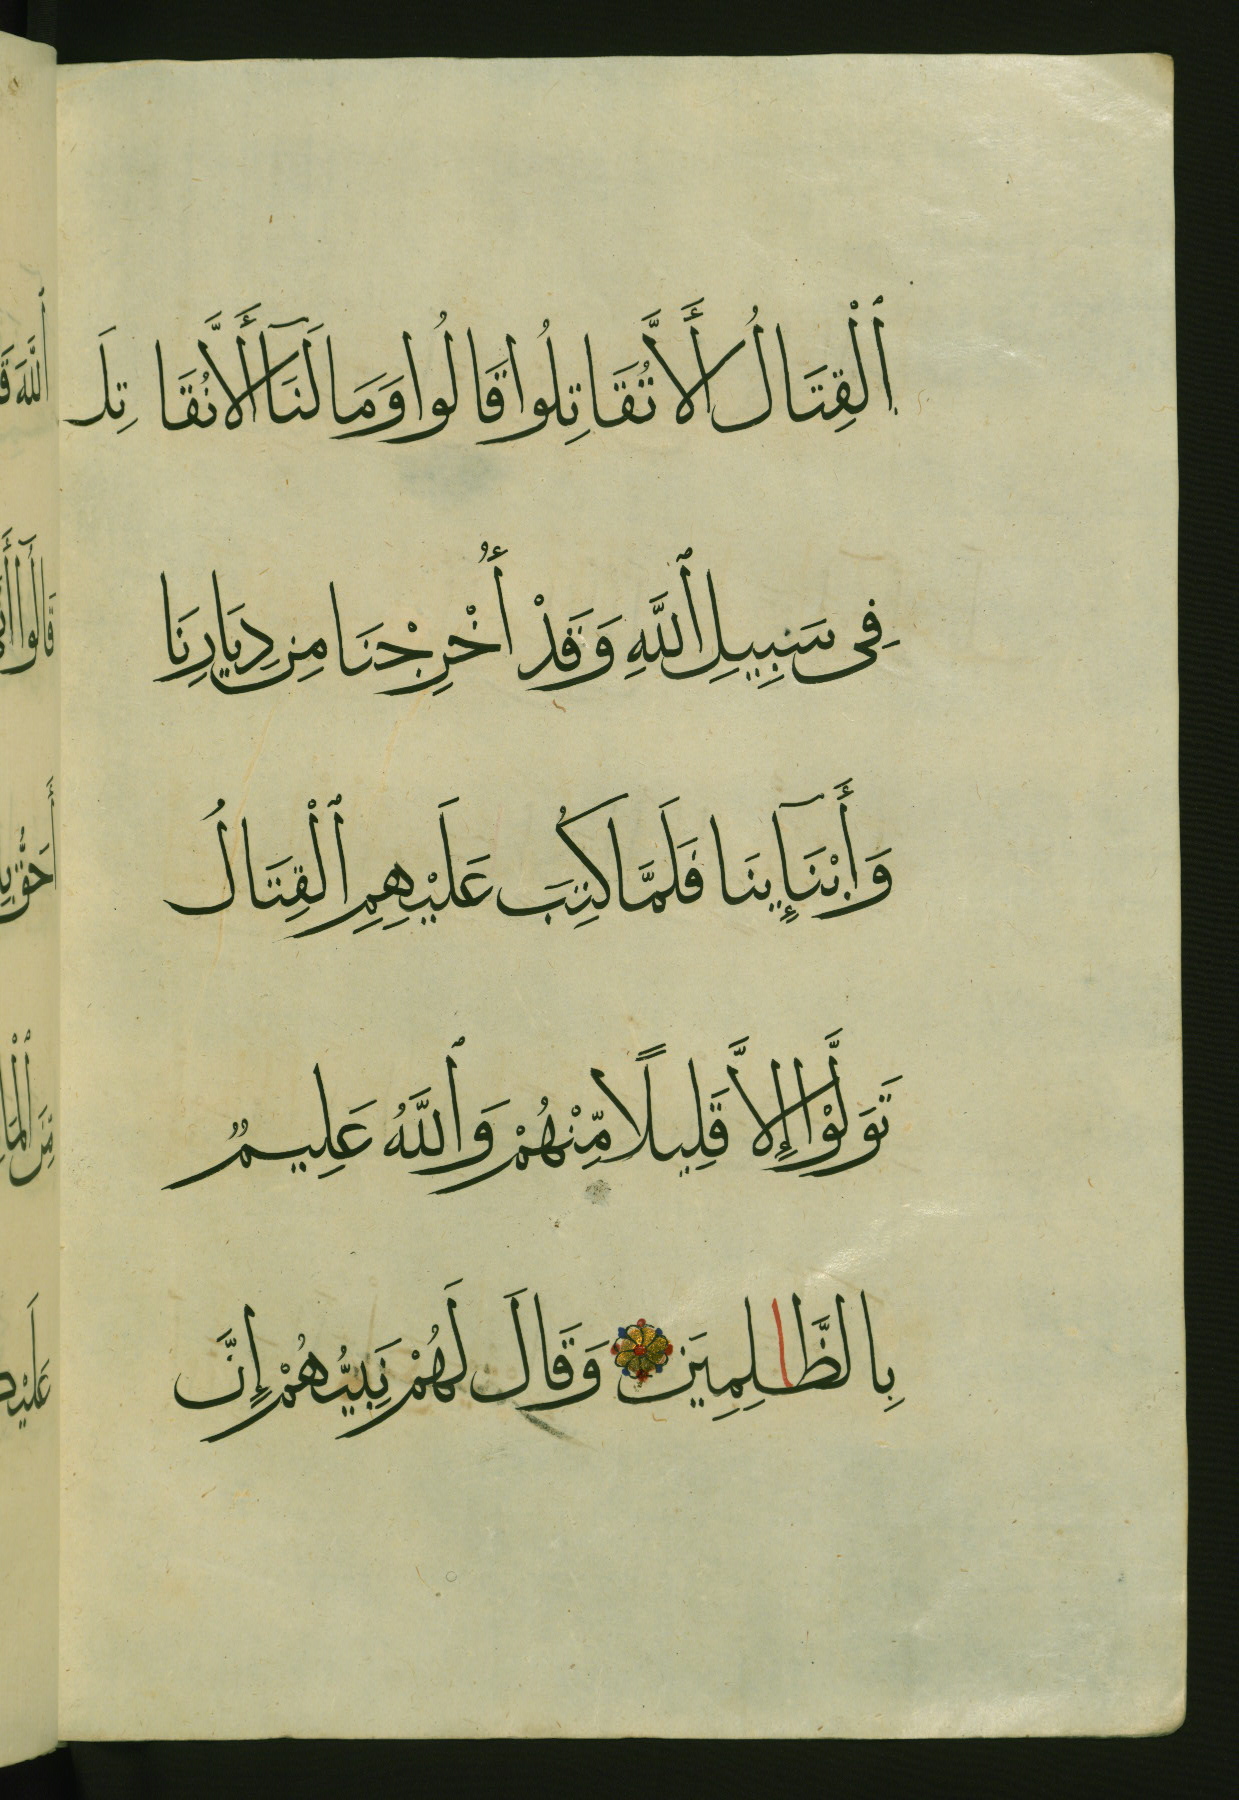 ٱلْقِتَالُ أَلَّا تُقَاتِلُوا قَالُوا وَمَا لَنَآ أَلَّا نُقَاتِلَ
فِى سَبِيلِ ٱللَّهِ وَقَدْ أُخْرِجْنَا مِن دِيَارِنَا
وَأَبْنَآئِنَا فَلَمَّا كُتِبَ عَلَيْهِمِ ٱلْقِتَالُ
تَوَلَّوْا إِلَّا قَلِيلًا مِّنْهُمْ وَٱللَّهُ عَلِيمٌ
بِالظَّالِمِينَ وَقَالَ لَهُمْ نَبِيُّهُمْ إِنَّ